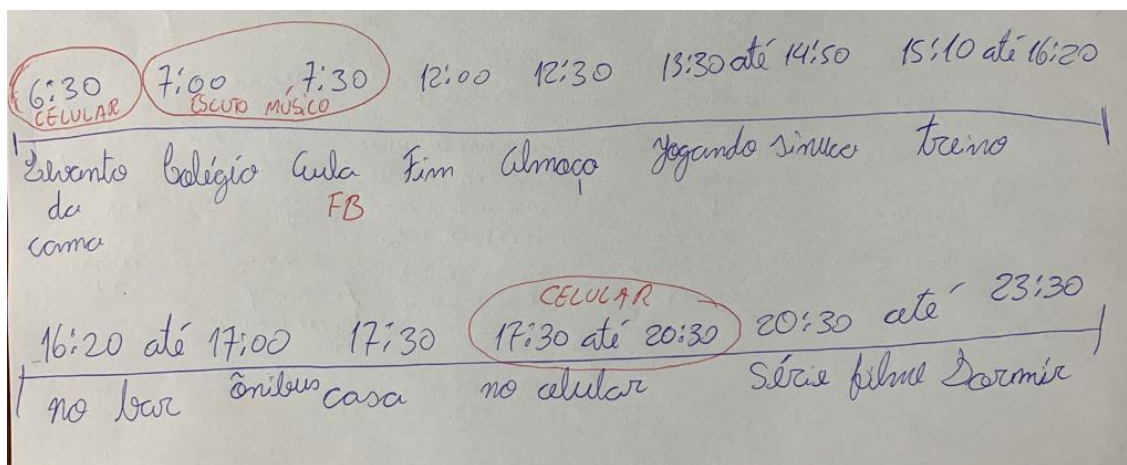 6:30 7:00 7:30 12:00 12:30 13:30 até 14:50 15:10 até 16:20
CELULAR ESCUTO MÚSICO
Levanto Colégio Aula Fim Almoço Jogando sinuca treino
da FB
cama
CELULAR
16:20 até 17:00 17:30 17:30 até 20:30 20:30 até 23:30
no bar ônibus casa no celular Série filme Dormir